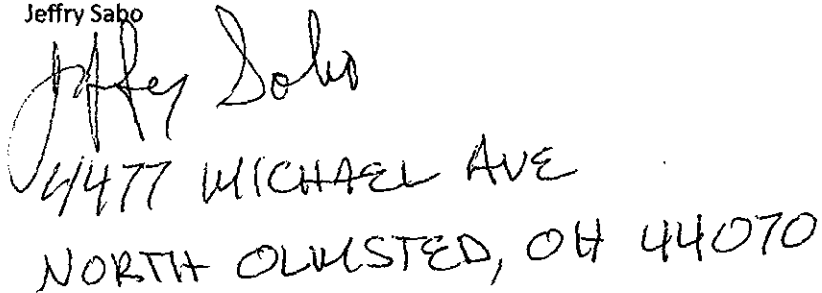 Jeffry Sabo
Jeffry Sabo
4477 MICHAEL AVE
NORTH OLMSTED, OH 44070